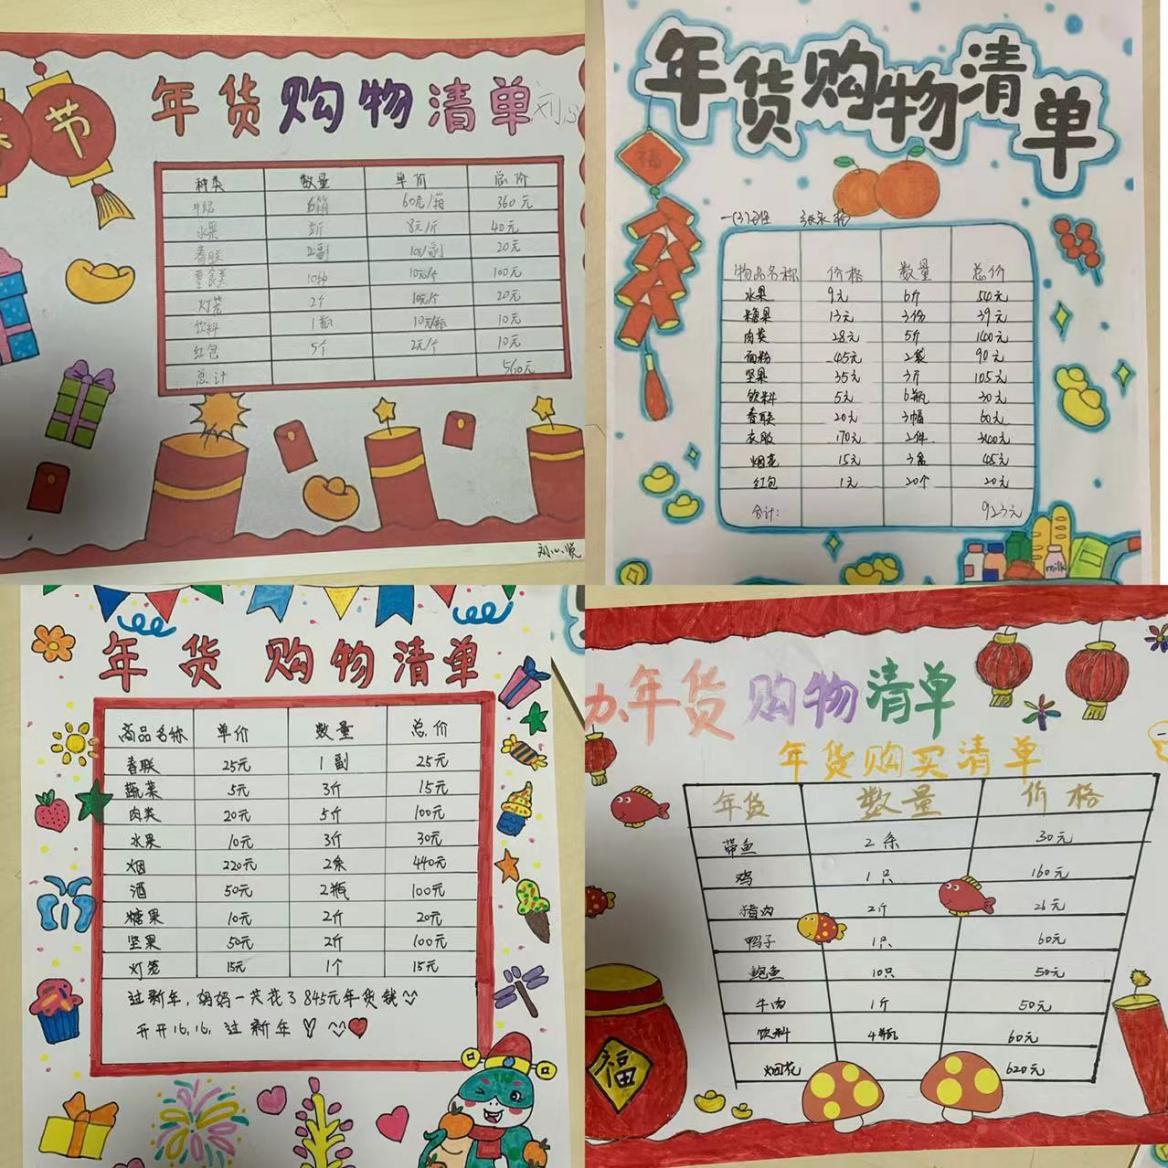 节
年货购物清单
种类 数量 单价 总价
牛奶 6箱 60元/箱 360元
水果 5斤 8元/斤 40元
春联 2副 10元/副 20元
10元/个 100元
灯笼 2个 10元/个 20元
饮料 1瓶 10元/瓶 10元
红包 5个 2元/个 10元
总计 560元
刘心悦
年货购物清单
福
一(3)班
物品名称 价格 数量 总价
水果 9元 6斤 54元
糖果 13元 3份 39元
肉类 28元 5斤 140元
面粉 45元 2袋 90元
坚果 35元 3斤 105元
饮料 5元 6瓶 30元
春联 20元 3幅 60元
衣服 170元 2件 340元
烟花 15元 3盒 45元
红包 1元 20个 20元
合计: 923元
milk
年货 购物清单
商品名称 单价 数量 总价
春联 25元 1副 25元
蔬菜 5元 3斤 15元
肉类 20元 5斤 100元
水果 10元 3斤 30元
烟 220元 2条 440元
酒 50元 2瓶 100元
糖果 10元 2斤 20元
坚果 50元 2斤 100元
灯笼 15元 1个 15元
过新年，妈妈一共花了845元年货钱
开开心心过新年
办年货购物清单
年货购买清单
年货 数量 价格
带鱼 2条 30元
鸡 1只 160元
猪肉 2斤 26元
鸭子 1只 60元
鲍鱼 10只 50元
牛肉 1斤 50元
饮料 4瓶 60元
烟花 620元
福